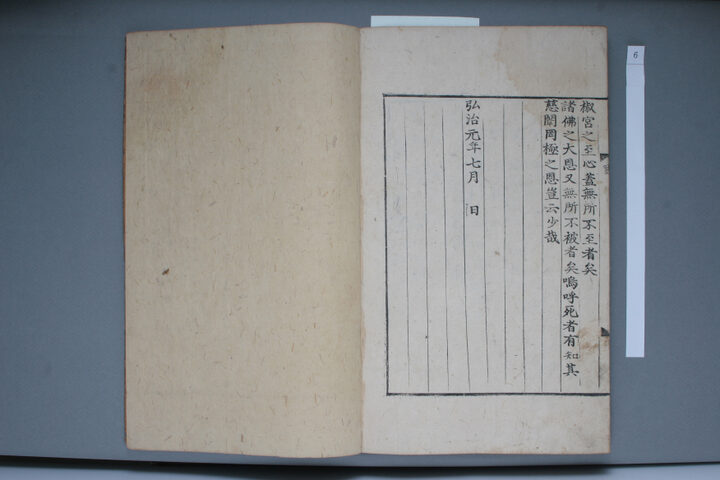 椒宮之至心蓋無所不至者矣
諸佛之大恩又無所不被者矣嗚呼死者有知其
慈闈罔極之恩豈云少哉
弘治元年七月　日
6